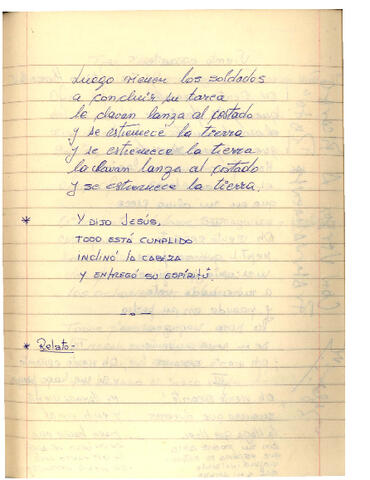 Luego vienen los soldados
a concluir su tarea
le clavan lanza al costado
y se estremece la tierra
y se estremece la tierra
le clavan lanza al costado
y se estremece la tierra.
* Y DIJO JESÚS,
TODO ESTÁ CUMPLIDO
INCLINÓ LA CABEZA
Y ENTREGÓ SU ESPÍRITÚ.
* Relato.-